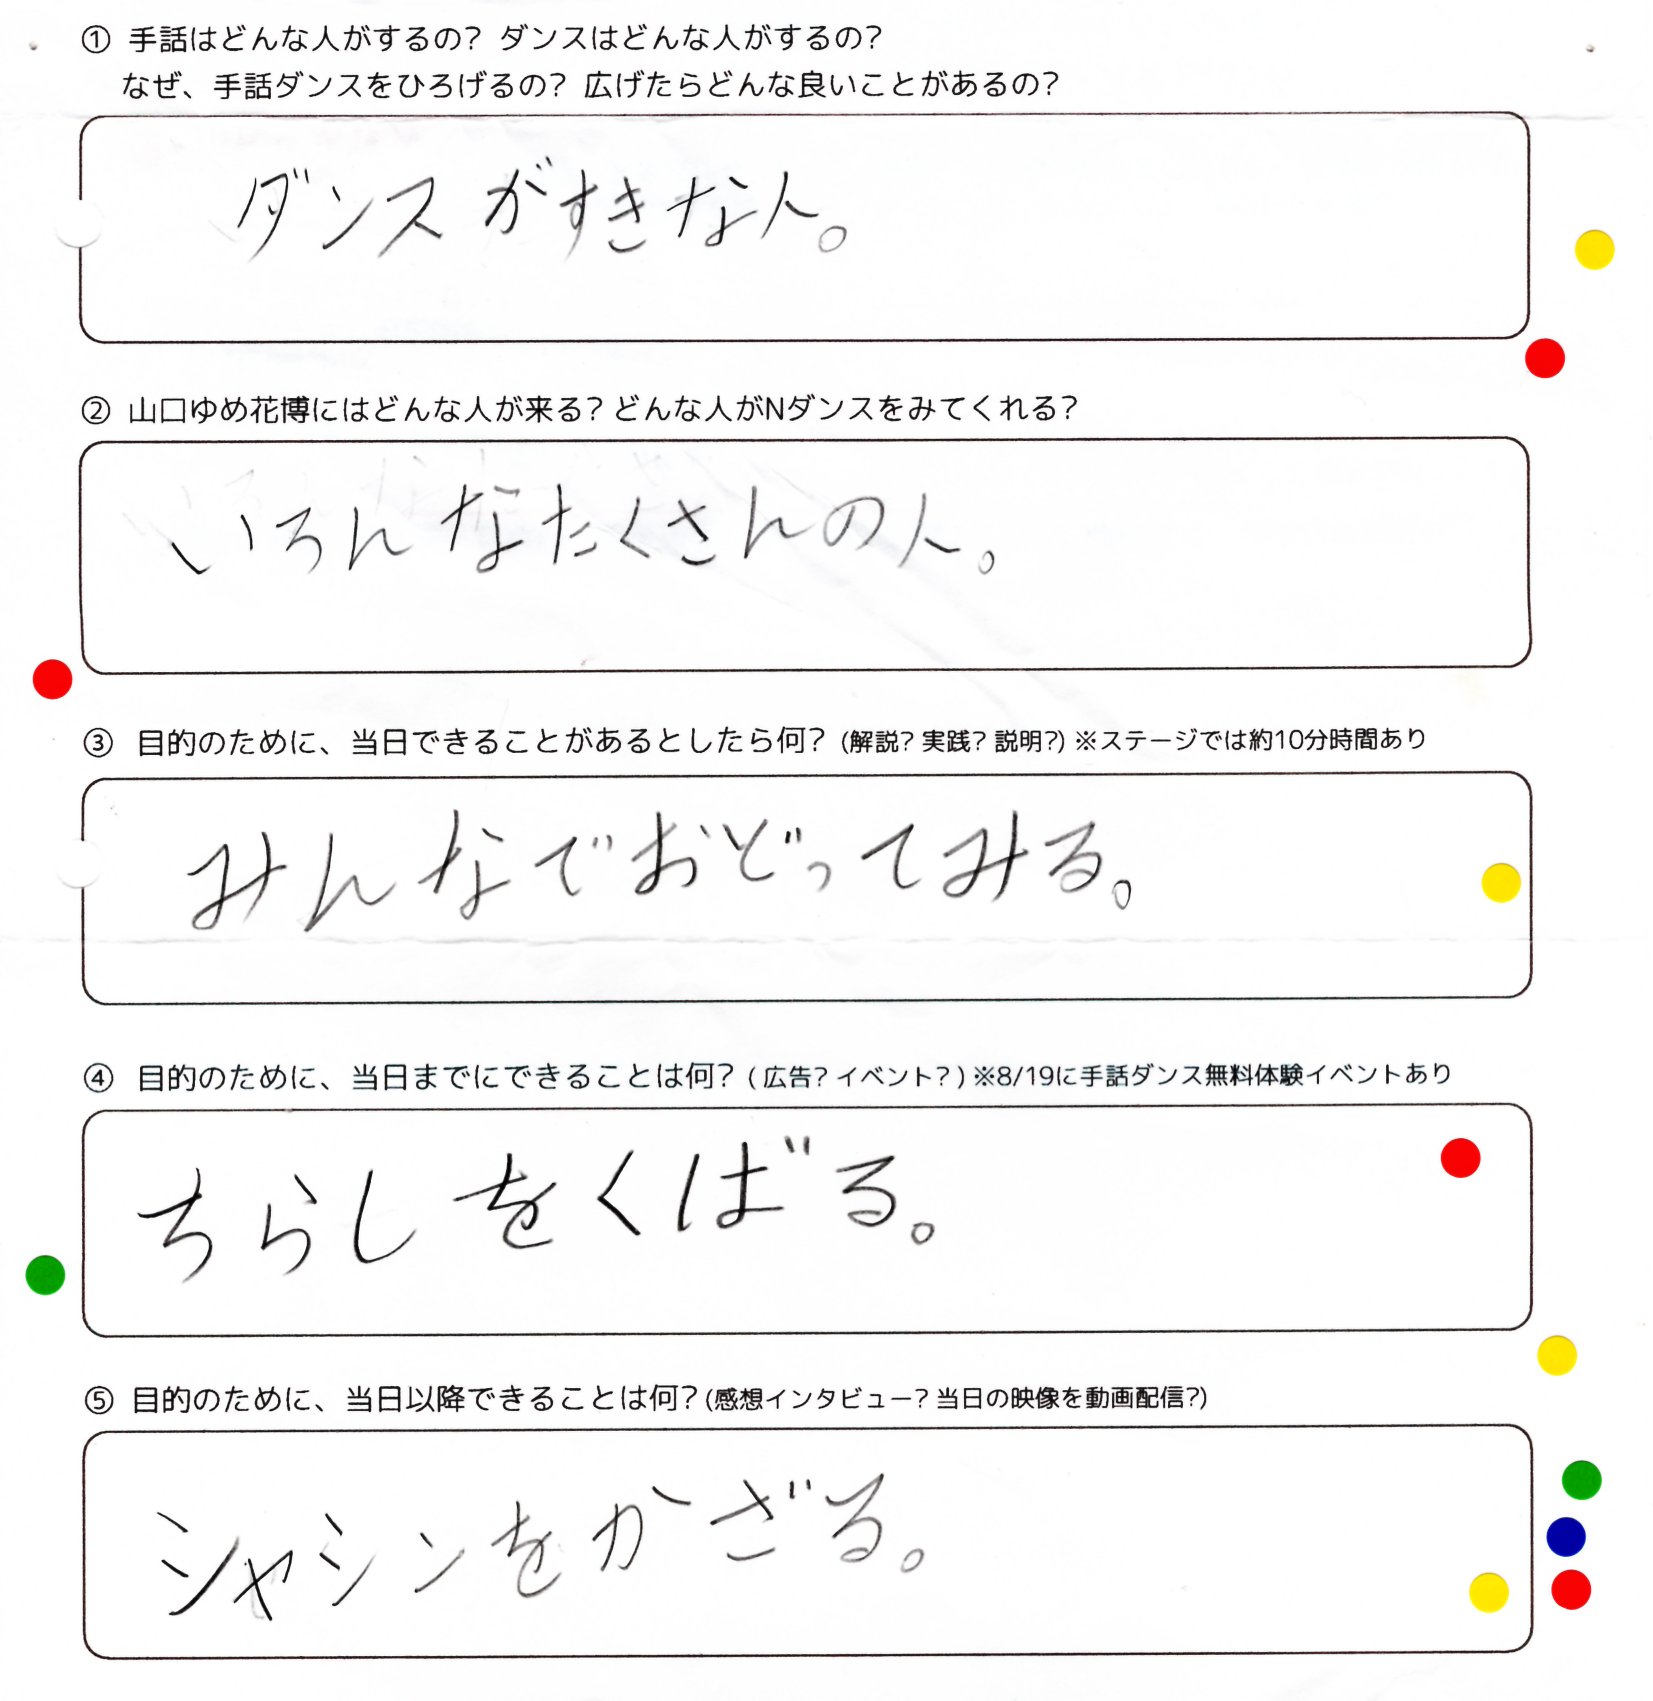 ① 手話はどんな人がするの? ダンスはどんな人がするの?
なぜ、手話ダンスをひろげるの? 広げたらどんな良いことがあるの?
ダンスがすきな人。
② 山口ゆめ花博にはどんな人が来る? どんな人がNダンスをみてくれる?
いろんなたくさんの人。
③ 目的のために、当日できることがあるとしたら何? (解説? 実践? 説明?) ※ステージでは約10分時間あり
みんなでおどってみる。
④ 目的のために、当日までにできることは何? ( 広告? イベント? ) ※8/19に手話ダンス無料体験イベントあり
ちらしをくばる。
⑤ 目的のために、当日以降できることは何? (感想インタビュー? 当日の映像を動画配信?)
シャシンをかざる。